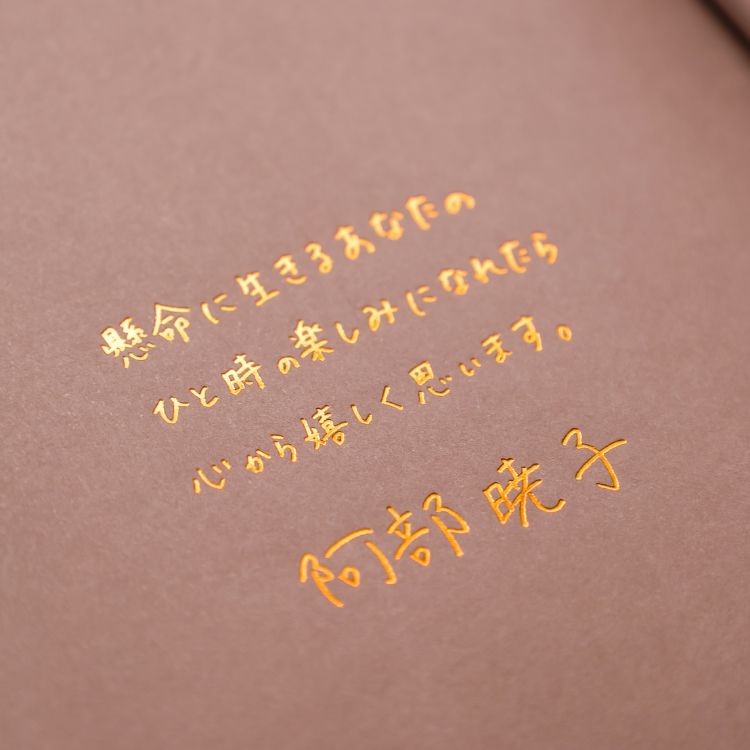 懸命に生きるあなたの
ひと時の楽しみになれたら
心から嬉しく思います。
阿部暁子